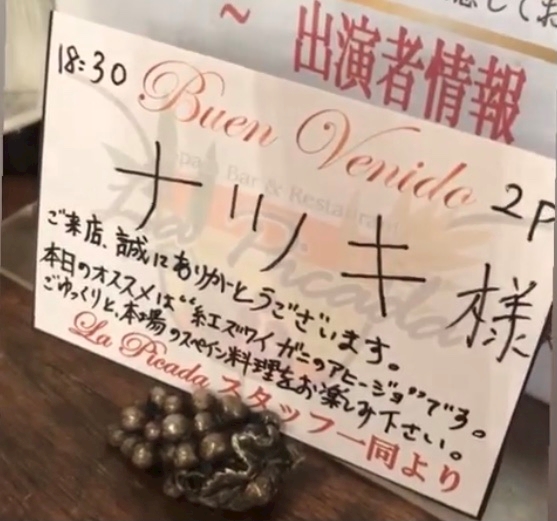 感してお
~ 出演者情報
18:30
Buen Venido
Spain Bar & Restaurant
La Picada
2P
ナツキ 様
ご来店、誠にありがとうございます。
本日のオススメは“紅ズワイガニのアヒージョ”です。
ごゆっくりと、本場のスペイン料理をお楽しみ下さい。
La Picada スタッフ一同より